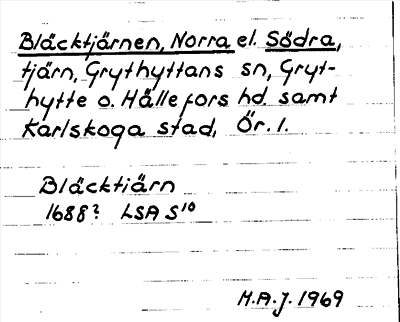 Bläcktjärnen, Norra el. Södra,
tjärn, Grythyttans sn, Gryt-
hytte o. Hällefors hd. samt
Karlskoga stad, Ör. l.
Bläcktiärn
1688? LSA S¹⁰
H.A.J. 1969